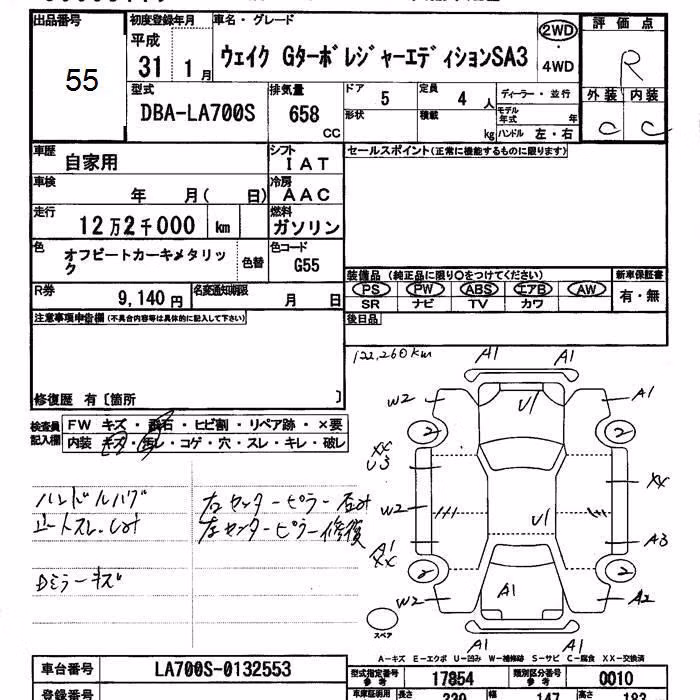 出品番号
55
初度登録年月
平成
31 1月
車名・グレード
ウェイク GターボレジャーエディションSA3
2WD
・
4WD
評価点
R
外装 内装
C C
型式
DBA-LA700S
排気量
658
CC
ドア 5
定員 4 人
形状
積載 kg
ディーラー・並行
モデル年式 年
ハンドル 左・右
車歴 自家用
シフト IAT
車検 年 月( 日)
冷房 AAC
走行 12万2千000 km
燃料 ガソリン
色 オフビートカーキメタリック
色替
色コード G55
R券 9,140円
名変通知期限 月 日
セールスポイント(正常に機能するものに限ります)
装備品 (純正品に限り○をつけてください)
PS PW ABS エアB AW
SR ナビ TV カワ
新車保証書
有・無
後日品
注意事項申告欄 (不具合内容等は具体的に記入して下さい)
修復歴 有〔箇所 〕
検査員記入欄
FW キズ・飛石・ヒビ割・リペア跡・×要
内装 キズ・汚レ・コゲ・穴・スレ・キレ・破レ
ハンドルハゲ
シートスレ、シミ
Dミラーキズ
右センターピラー凹み
左センターピラー修復
122,260km
A1 A1
W2 U1 A1
2 2
XX
U3
XX
W2
U1
A1
XX
A3
2 2
W2 A1 A2
A1 A1
スペア
A-キズ E-エクボ U-凹み W-補修跡 S-サビ C-腐食 XX-交換済
車台番号 LA700S-0132553
型式指定番号 参考 17854
類別区分番号 参考 0010
登録番号
車庫証明用 参考
長さ 339
幅 147
高さ 183